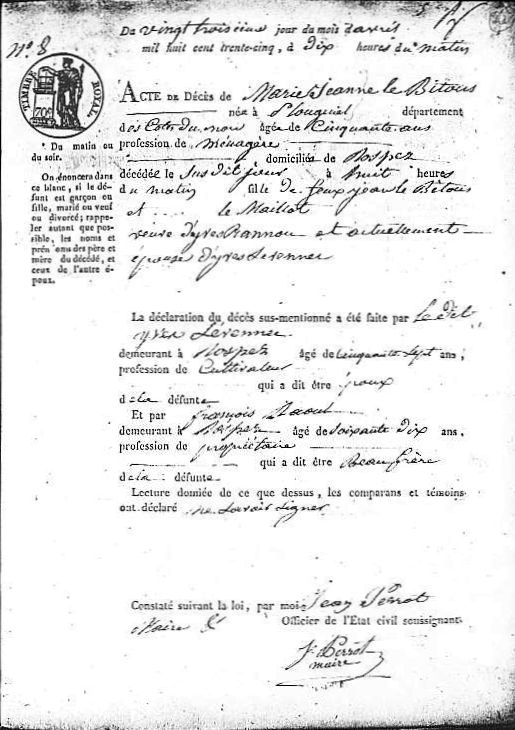 Du vingt troisième jour du mois d'avril
mil huit cent trente-cinq, à dix heures du* matin
N° 8
TIMBRE ROYAL
70c
ACTE DE DÉCÈS de Marie Jeanne le Bitous
née à Plouguiel département
des Cotes du nord âgée de Cinquante ans
profession de ménagère
domiciliée de Rospez
décédée le Sus dit jour à huit heures
du matin fille de feux jean le Bitous
et le Maillot
veuve d'yves Rannou et actuellement
épouse d'yves Levenner
* Du matin ou
du soir.
On énoncera dans
ce blanc, si le dé-
funt est garçon ou
fille, marié ou veuf
ou divorcé; rappe-
ler autant que pos-
sible, les noms et
prénoms des père et
mère du décédé, et
ceux de l'autre é-
poux.
La déclaration du décès sus-mentionné a été faite par Le dit
yves Levenner
demeurant à Rospez âgé de Cinquante Sept ans,
profession de Cultivateur
qui a dit être époux
de la défunte
Et par françois Raoul
demeurant à Rospez âgé de Soixante dix ans.
profession de propriétaire
qui a dit être Beau frère
de la défunte.
Lecture donnée de ce que dessus, les comparans et témoins
ont déclaré ne Savoir Signer
Constaté suivant la loi, par moi Jean Perrot
Maire Officier de l'Etat civil soussignant.
J. Perrot
maire